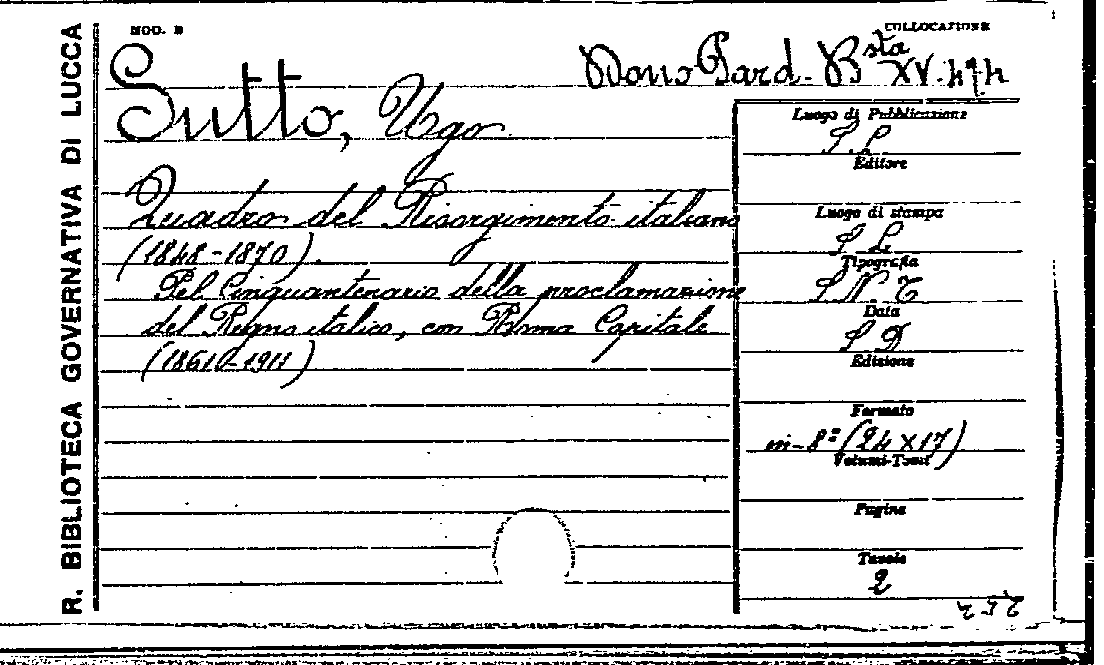 R. BIBLIOTECA GOVERNATIVA DI LUCCA
MOD. B
COLLOCAZIONE
Dono Pard. Bsta XV.474
Sutto, Ugo
Quadro del Risorgimento italiano
(1848-1870).
Pel Cinquantenario della proclamazione
del Regno italico, con Roma Capitale
(18610-1911)
Luogo di Pubblicazione
S. L.
Editore
Luogo di stampa
S L
Tipografia
S N T
Data
S D
Edizione
Formato
in-8º (24 x 17)
Volumi-Tomi
Pagine
Tavole
2